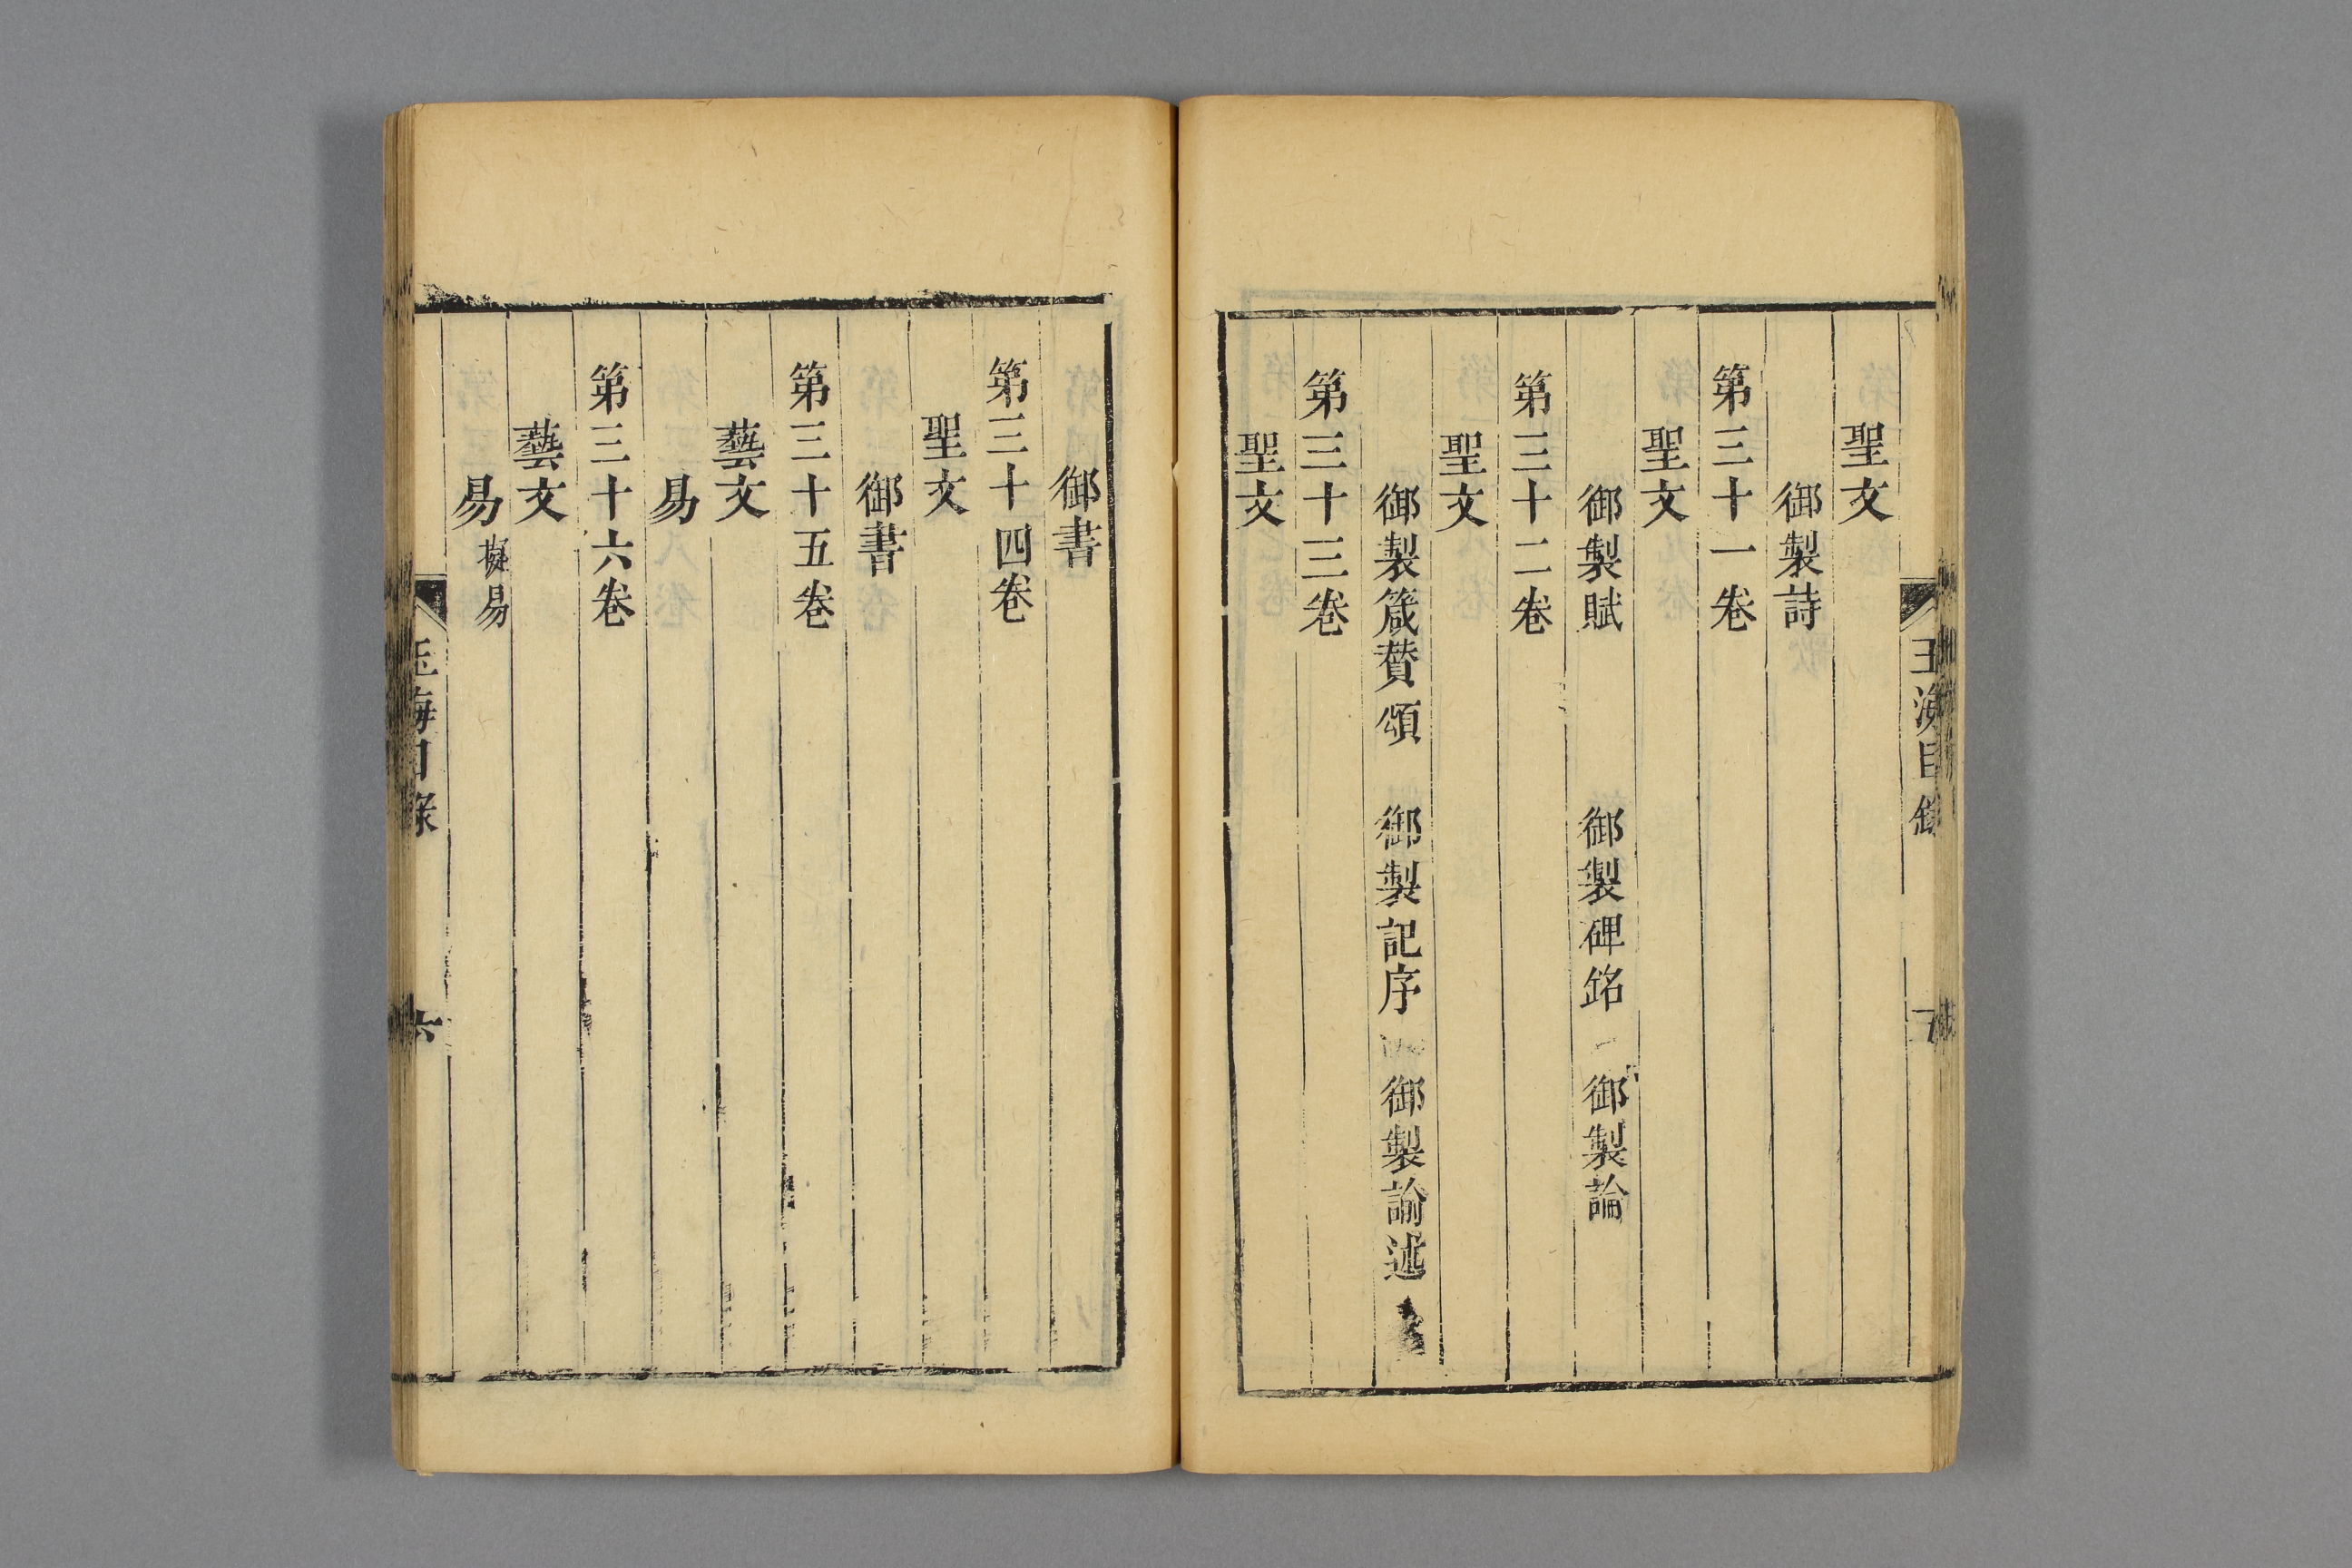 聖文
御製詩
第三十一卷
聖文
御製賦　御製碑銘　御製論
第三十二卷
聖文
御製箴賛頌　御製記序　御製諭述
第三十三卷
聖文
御書
第三十四卷
聖文
御書
第三十五卷
藝文
易
第三十六卷
藝文
易 擬易
玉海目錄
六